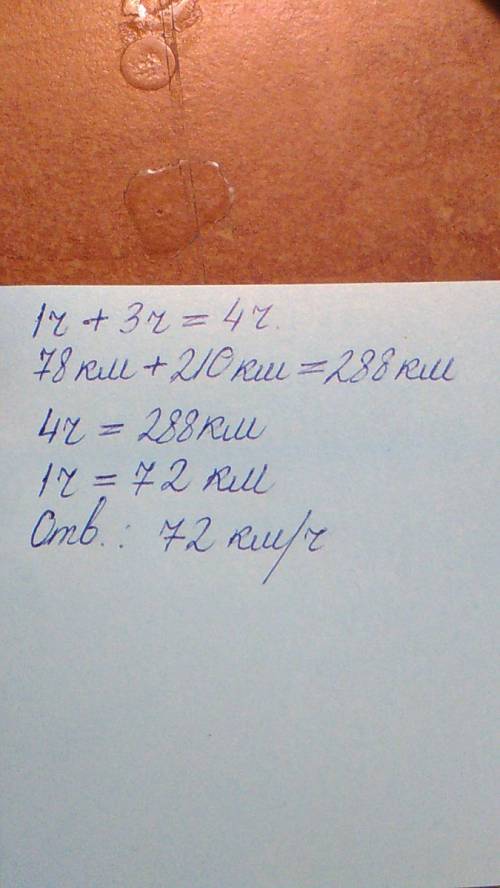 1ч + 3ч = 4ч.
78 км + 210 км = 288 км
4ч = 288 км
1ч = 72 км
Отв.: 72 км/ч